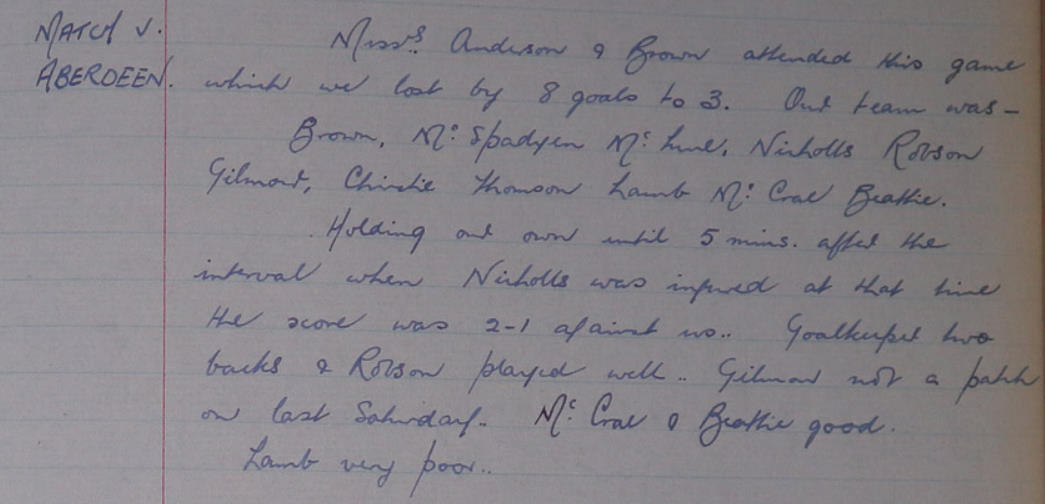 MATCH V.
ABERDEEN.
Messrs. Anderson & Brown attended this game
which we lost by 8 goals to 3. Our team was —
Brown, Mc. Spadyen Mc. Lure, Nicholls Robson
Gilmour, Christie Thomson Lamb Mc. Crae Beattie.
Holding our own until 5 mins. after the
interval when Nicholls was injured at that time
the score was 2-1 against us.. Goalkeeper two
backs & Robson played well.. Gilmour not a patch
on last Saturday.. Mc. Crae & Beattie good.
Lamb very poor..